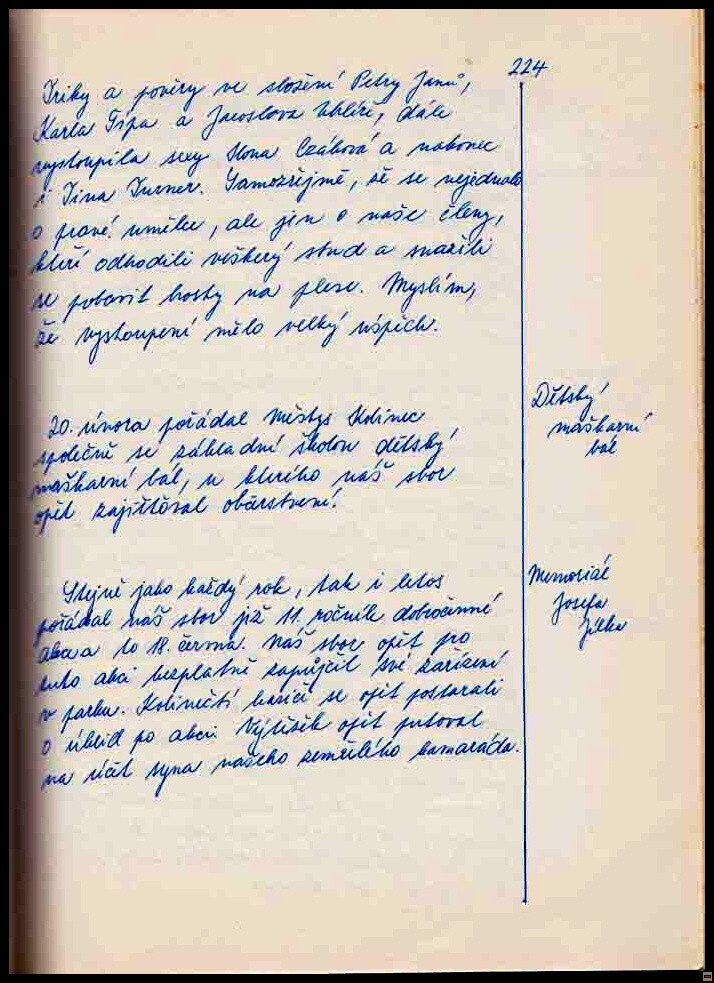 224
Triky a pověry ve složení Petry Janů,
Karla Šípa a Jaroslava Uhlíře, dále
vystoupila sexy Ilona Czáková a nakonec
i Tina Turner. Samozřejmě, že se nejednalo
o pravé umělce, ale jen o naše členy,
kteří odhodili veškerý stud a snažili
se pobavit hosty na plese. Myslím,
že vystoupení mělo velký úspěch.
Dětský
maškarní
bál
20. února pořádal Městys Kolinec
společně se základní školou dětský
maškarní bál, u kterého náš sbor
opět zajišťoval občerstvení.
Memoriál
Josefa
Jílka
Stejně jako každý rok, tak i letos
pořádal náš sbor již 11. ročník dobročinné
akce a to 18. června. Náš sbor opět pro
tuto akci bezplatně zapůjčil své zařízení
v parku. Kolinečtí hasiči se opět postarali
o úklid po akci. Výtěžek opět putoval
na účet syna našeho zemřelého kamaráda.